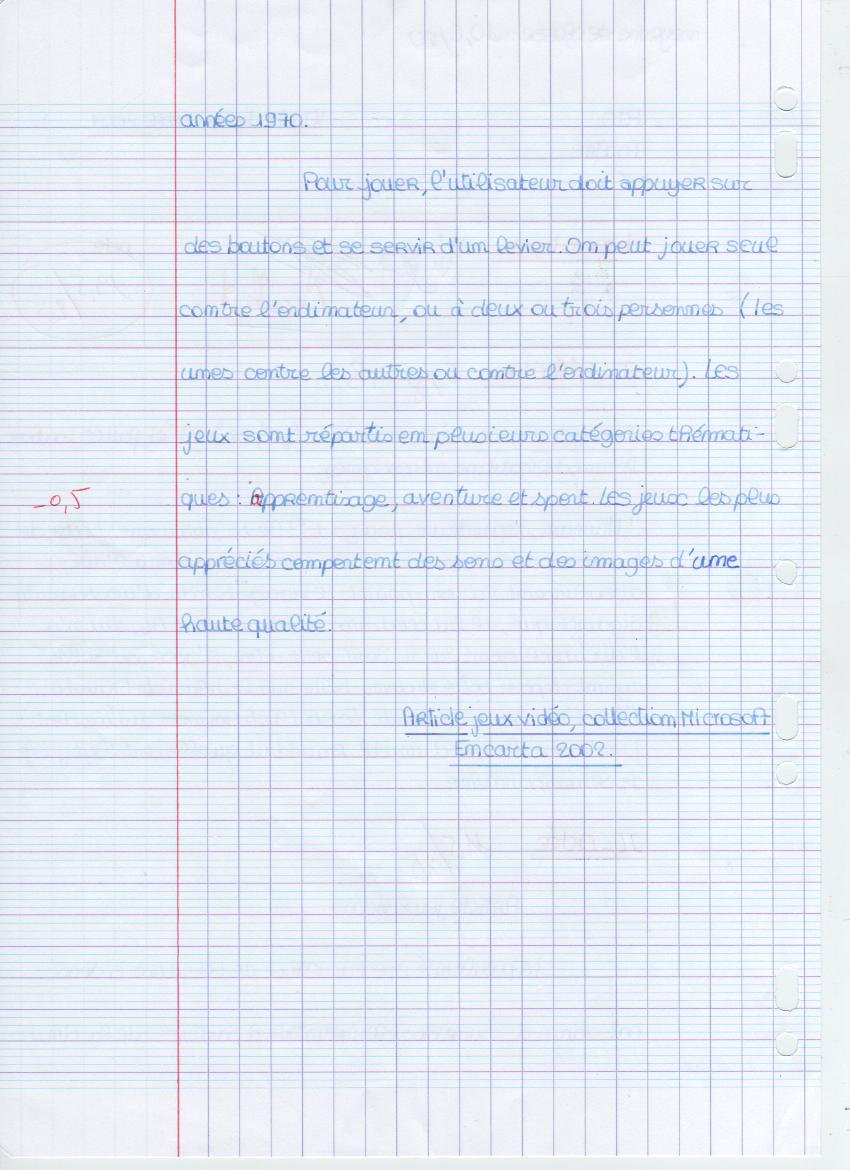 années 1970.
Pour jouer, l'utilisateur doit appuyer sur
des boutons et se servir d'un levier. On peut jouer seul
contre l'ordinateur, ou à deux ou trois personnes (les
unes contre les autres ou contre l'ordinateur). Les
jeux sont répartis en plusieurs catégories thémati-
-0,5
ques : apprentisage, aventure et sport. Les jeux les plus
appréciés comportent des sons et des images d'une
haute qualité.
Article jeux vidéo, collection Microsoft
Encarta 2002.